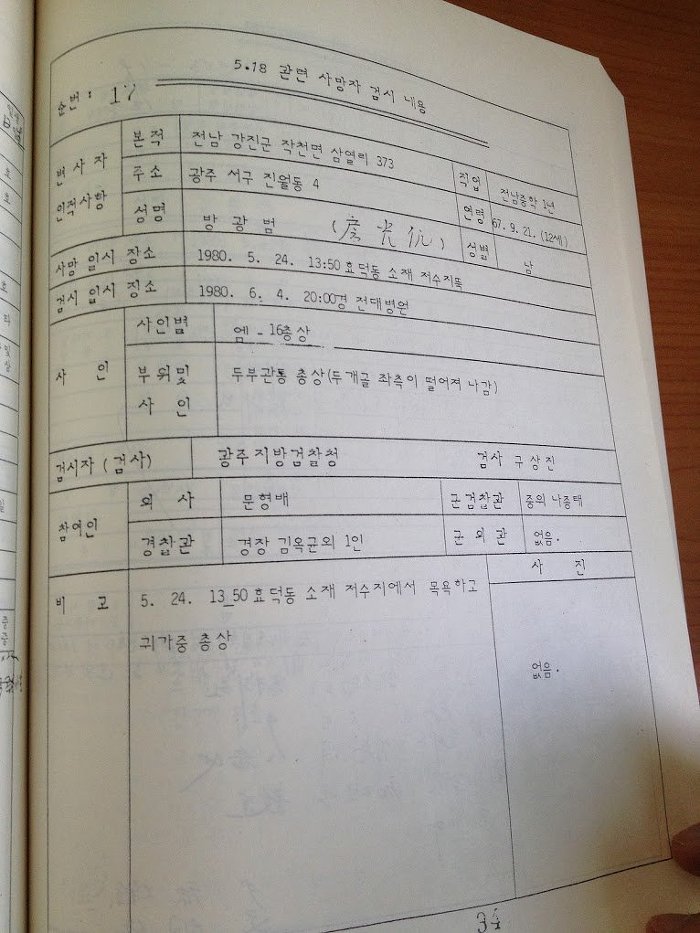 5.18 관련 사망자 검시 내용
순번 : 17
변사자 인적사항
본적 전남 강진군 작천면 삼열리 373
주소 광주 서구 진월동 4
직업 전남중학 1년
성명 방 광 범
연령 67. 9. 21. (12세)
성별 남
사망 일시 장소 1980. 5. 24. 13:50 효덕동 소재 저수지뚝
검시 일시 장소 1980. 6. 4. 20:00경 전대병원
사 인
사인별 엠-16총상
부위및 사 인 두부관통 총상(두개골 좌측이 떨어져 나감)
검시자 (검사) 광주지방검찰청 검사 구상진
참여인
의 사 문형배 군검찰관 중위 나종태
경찰관 경장 김옥균외 1인 군 의 관 없음.
비 고
5. 24. 13_50 효덕동 소재 저수지에서 목욕하고
귀가중 총상
사 진
없음.
34